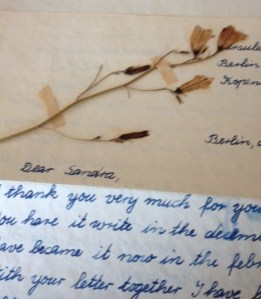 Berlin
Berlin,
Dear Sandra,
thank you very much for you
ou have it write in the decem
ave became it now in the feb
ith your letter together I have